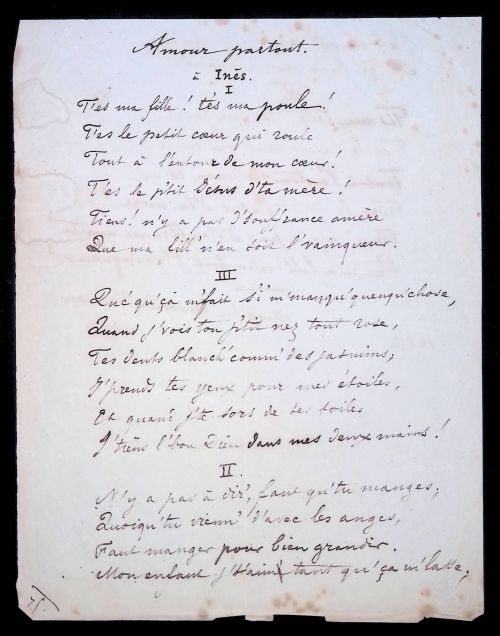 Amour partout.
à Inès.
I
T'es ma fille ! t'es ma poule !
T'es le petit cœur qui roule
Tout à l'entour de mon cœur !
T'es le p'tit Jésus d'ta mère !
Tiens ! n'y a pas d'souffrance amère
Que ma fill' n'en soit l'vainqueur.
III
Qué qu'çà m'fait si m'manqu' queuqu'chose,
Quand j'vois ton p'tit nez tout rose,
Tes dents blanch' comm' des jasmins,
J'prends tes yeux pour mes étoiles,
Et quand j'te sors de tes toiles
J'tiens l'bon Dieu dans mes deux mains !
II.
N'y a pas à dir', faut qu'tu manges,
Quoiqu'tu vienn' d'avec les anges,
Faut manger pour bien grandir.
Mon enfant j't'aim' tant qu'ça m'lasse,